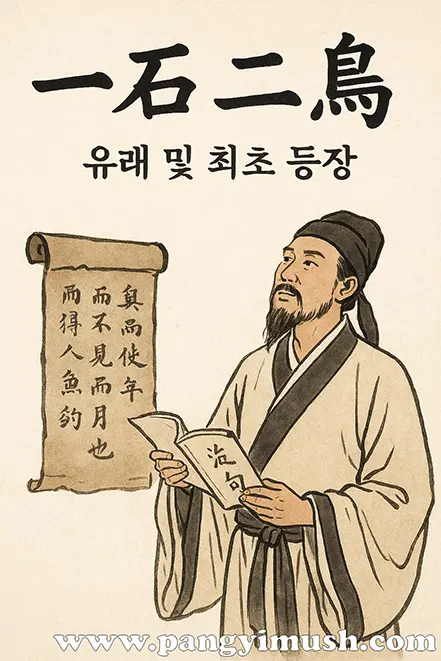 一石二鳥
유래 및 최초 등장
而不見而月也
而得人魚
www.pangyimush.com